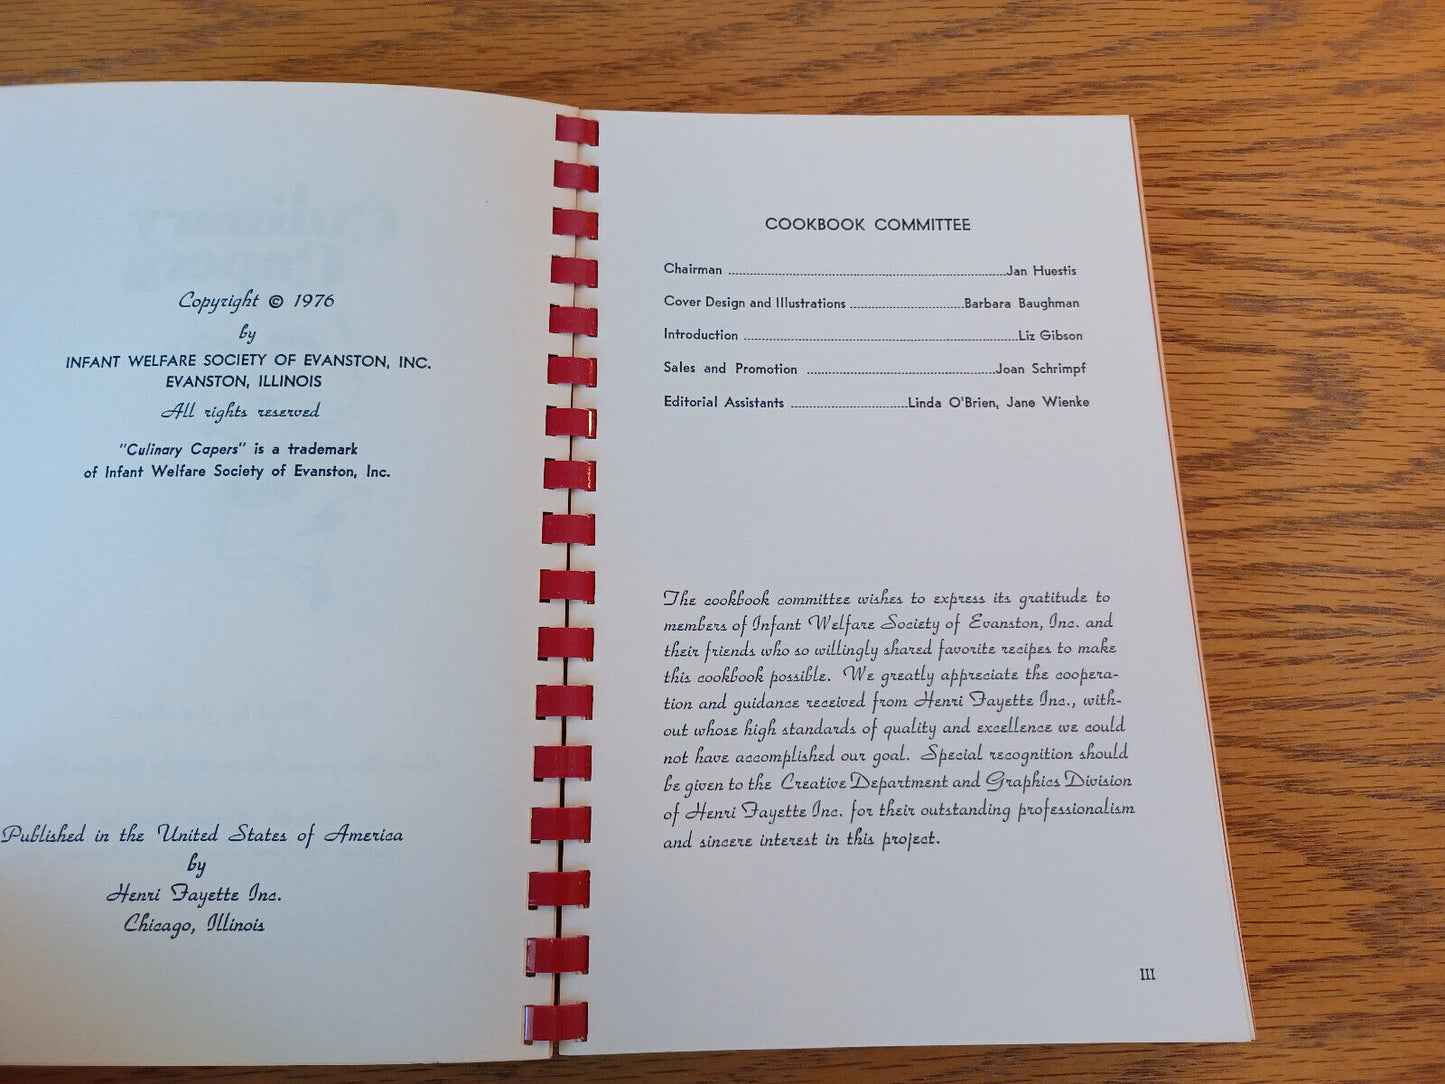 Copyright © 1976
by
INFANT WELFARE SOCIETY OF EVANSTON, INC.
EVANSTON, ILLINOIS
All rights reserved
"Culinary Capers" is a trademark
of Infant Welfare Society of Evanston, Inc.
Published in the United States of America
by
Henri Fayette Inc.
Chicago, Illinois
COOKBOOK COMMITTEE
Chairman ........................ Jan Huestis
Cover Design and Illustrations ........................ Barbara Baughman
Introduction ........................ Liz Gibson
Sales and Promotion ........................ Joan Schrimpf
Editorial Assistants ........................ Linda O'Brien, Jane Wienke
The cookbook committee wishes to express its gratitude to
members of Infant Welfare Society of Evanston, Inc. and
their friends who so willingly shared favorite recipes to make
this cookbook possible. We greatly appreciate the coopera-
tion and guidance received from Henri Fayette Inc., with-
out whose high standards of quality and excellence we could
not have accomplished our goal. Special recognition should
be given to the Creative Department and Graphics Division
of Henri Fayette Inc. for their outstanding professionalism
and sincere interest in this project.
III